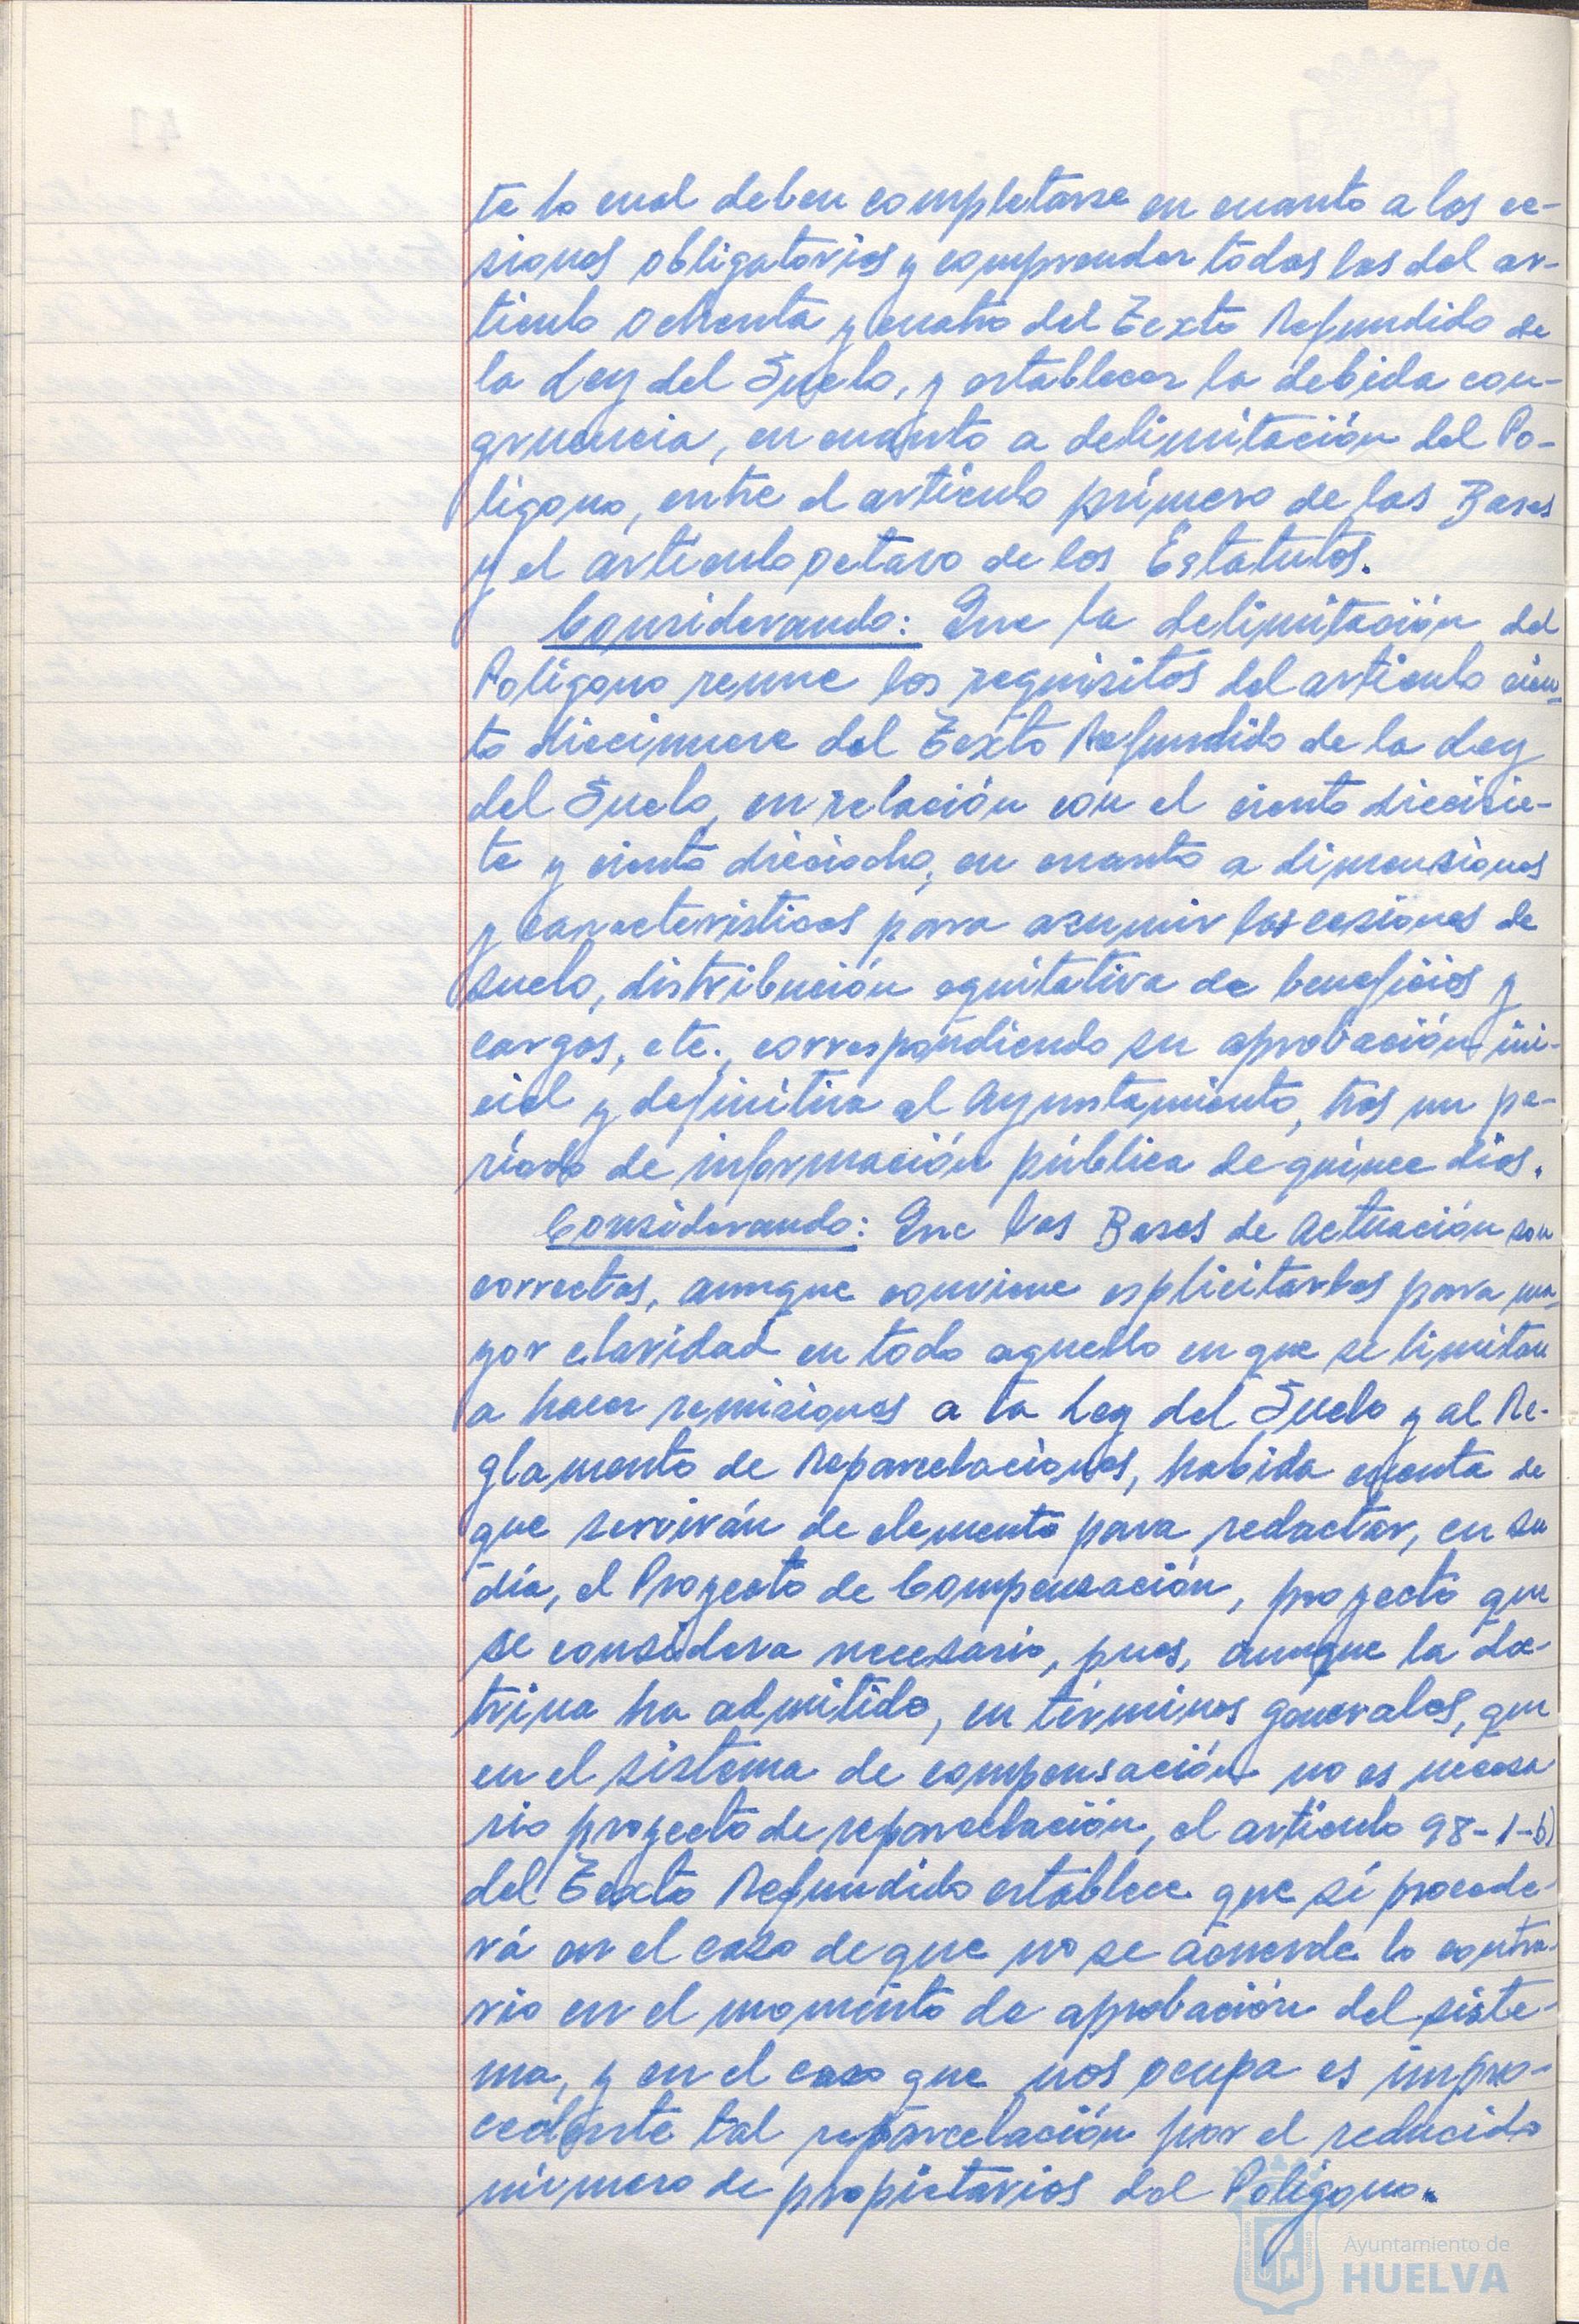 te lo cual deben completarse en cuanto a las ce-
siones obligatorias y comprender todas las del ar-
tículo ochenta y cuatro del Texto Refundido de
la Ley del Suelo, y establecer la debida con-
gruencia, en cuanto a delimitación del Po-
lígono, entre el artículo primero de las Bases
y el artículo octavo de los Estatutos.
Considerando: Que la delimitación del
Polígono reune los requisitos del artículo cien-
to diecinueve del Texto Refundido de la Ley
del Suelo, en relación con el ciento diecisie-
te y ciento dieciocho, en cuanto a dimensiones
y características para asumir las cesiones de
suelo, distribución equitativa de beneficios y
cargas, etc., correspondiendo su aprobación ini-
cial y definitiva al Ayuntamiento, tras un pe-
ríodo de información pública de quince días.
Considerando: Que las Bases de Actuación son
correctas, aunque conviene explicitarlas para ma-
yor claridad en todo aquello en que se limitan
a hacer remisiones a la Ley del Suelo y al Re-
glamento de Reparcelaciones, habida cuenta de
que servirán de elemento para redactar, en su
día, el Proyecto de Compensación, proyecto que
se considera necesario, pues, aunque la doc-
trina ha admitido, en términos generales, que
en el sistema de compensación no es necesa
rio proyecto de reparcelación, el artículo 98-1-b)
del Texto Refundido establece que sí procede-
rá en el caso de que no se acuerde lo contra-
rio en el momento de aprobación del siste-
ma, y en el caso que nos ocupa es impro-
cedente tal reparcelación por el reducido
número de propietarios del Polígono.
Ayuntamiento de
HUELVA
41